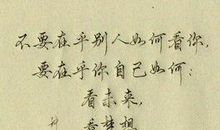 不要在乎别人如何看你，
要在乎你自己如何：
看未来，
看梦想